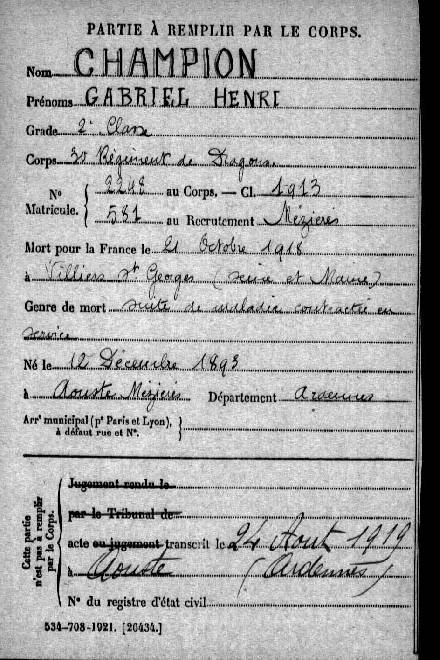 PARTIE À REMPLIR PAR LE CORPS.
Nom CHAMPION
Prénoms GABRIEL HENRI
Grade 2e Classe
Corps 3e Régiment de Dragons
No Matricule. { 2248 au Corps. — Cl. 1913
581 au Recrutement Mézières
Mort pour la France le 21 Octobre 1918
à Villiers St Georges (Seine et Marne)
Genre de mort suite de maladie contractée en
service
Né le 12 Décembre 1893
à Aouste Mézières Département Ardennes
Arrt municipal (pr Paris et Lyon),
à défaut rue et No. }
Cette partie
n'est pas à remplir
par le Corps.
Jugement rendu le
par le Tribunal de
acte ou jugement transcrit le 24 Aout 1919
à Aouste (Ardennes)
No du registre d'état civil
534-708-1921. [26434.]